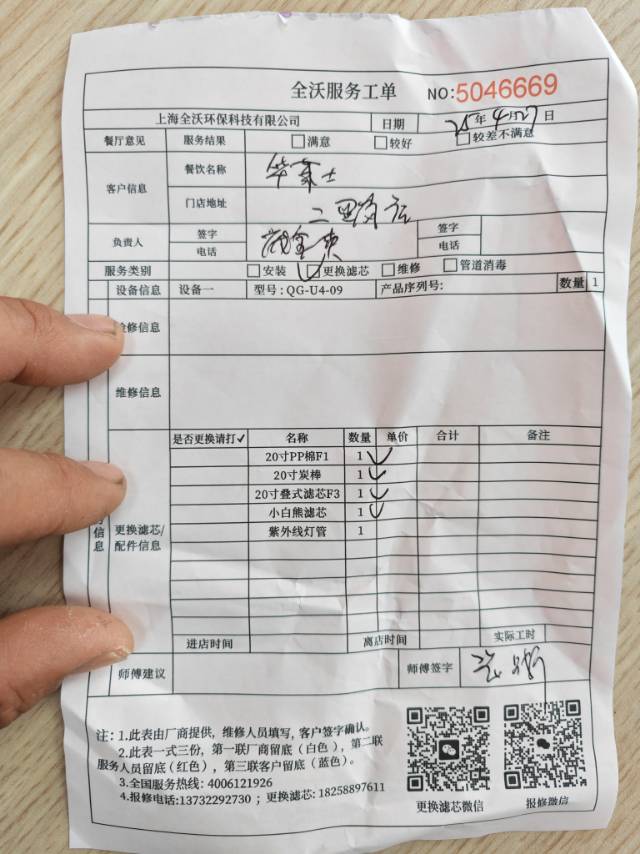 全沃服务工单 NO:5046669
上海全沃环保科技有限公司 日期 25年4月27日
餐厅意见 服务结果 满意 较好 较差不满意
客户信息 餐饮名称 华莱士
门店地址
负责人 签字 签字
电话 电话
服务类别 安装 更换滤芯 维修 管道消毒
设备信息 设备一 型号:QG-U4-09 产品序列号: 数量 1
检修信息
维修信息
是否更换请打✓ 名称 数量 单价 合计 备注
20寸PP棉F1 1 ✓
20寸炭棒 1 ✓
20寸叠式滤芯F3 1 ✓
小白熊滤芯 1 ✓
紫外线灯管 1
信息
更换滤芯/
配件信息
进店时间 离店时间 实际工时
师傅建议 师傅签字
注:1.此表由厂商提供,维修人员填写,客户签字确认。
2.此表一式三份,第一联厂商留底(白色),第二联
服务人员留底(红色),第三联客户留底(蓝色)。
3.全国服务热线:4006121926
4.报修电话:13732292730;更换滤芯:18258897611
更换滤芯微信 报修微信